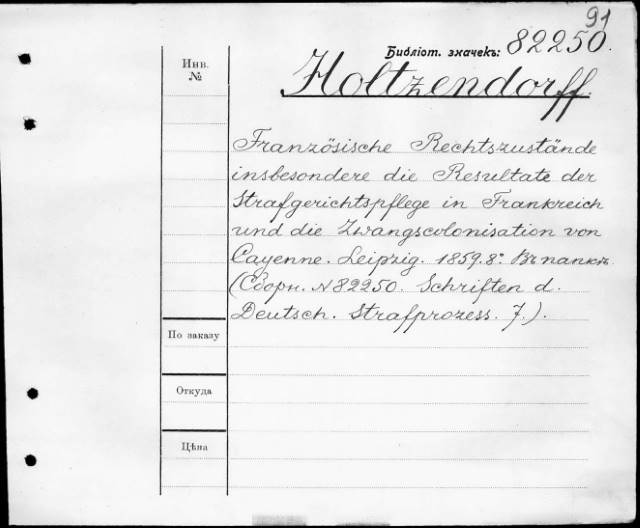 91
Библіот. значекъ: 82250.
Инв.
№
Holtzendorff.
Französische Rechtszustände
insbesondere die Resultate der
Strafgerichtspflege in Frankreich
und die Zwangscolonisation von
Cayenne. Leipzig. 1859. 8º. Въ папкѣ.
(Сборн. №82250. Schriften d.
Deutsch. Strafprozess. 7.).
По заказу
Откуда
Цѣна